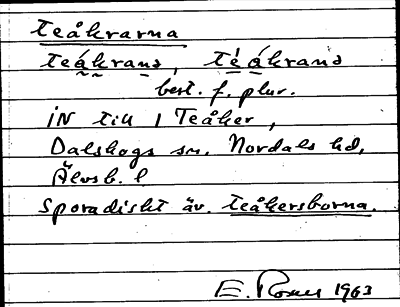 Teåkrarna
teåkrana, téákrana
best. f. plur.
IN till 1 Teåker,
Dalskogs sn. Nordals hd,
Älvsb. l
Sporadiskt äv. teåkersborna.
E. 1963